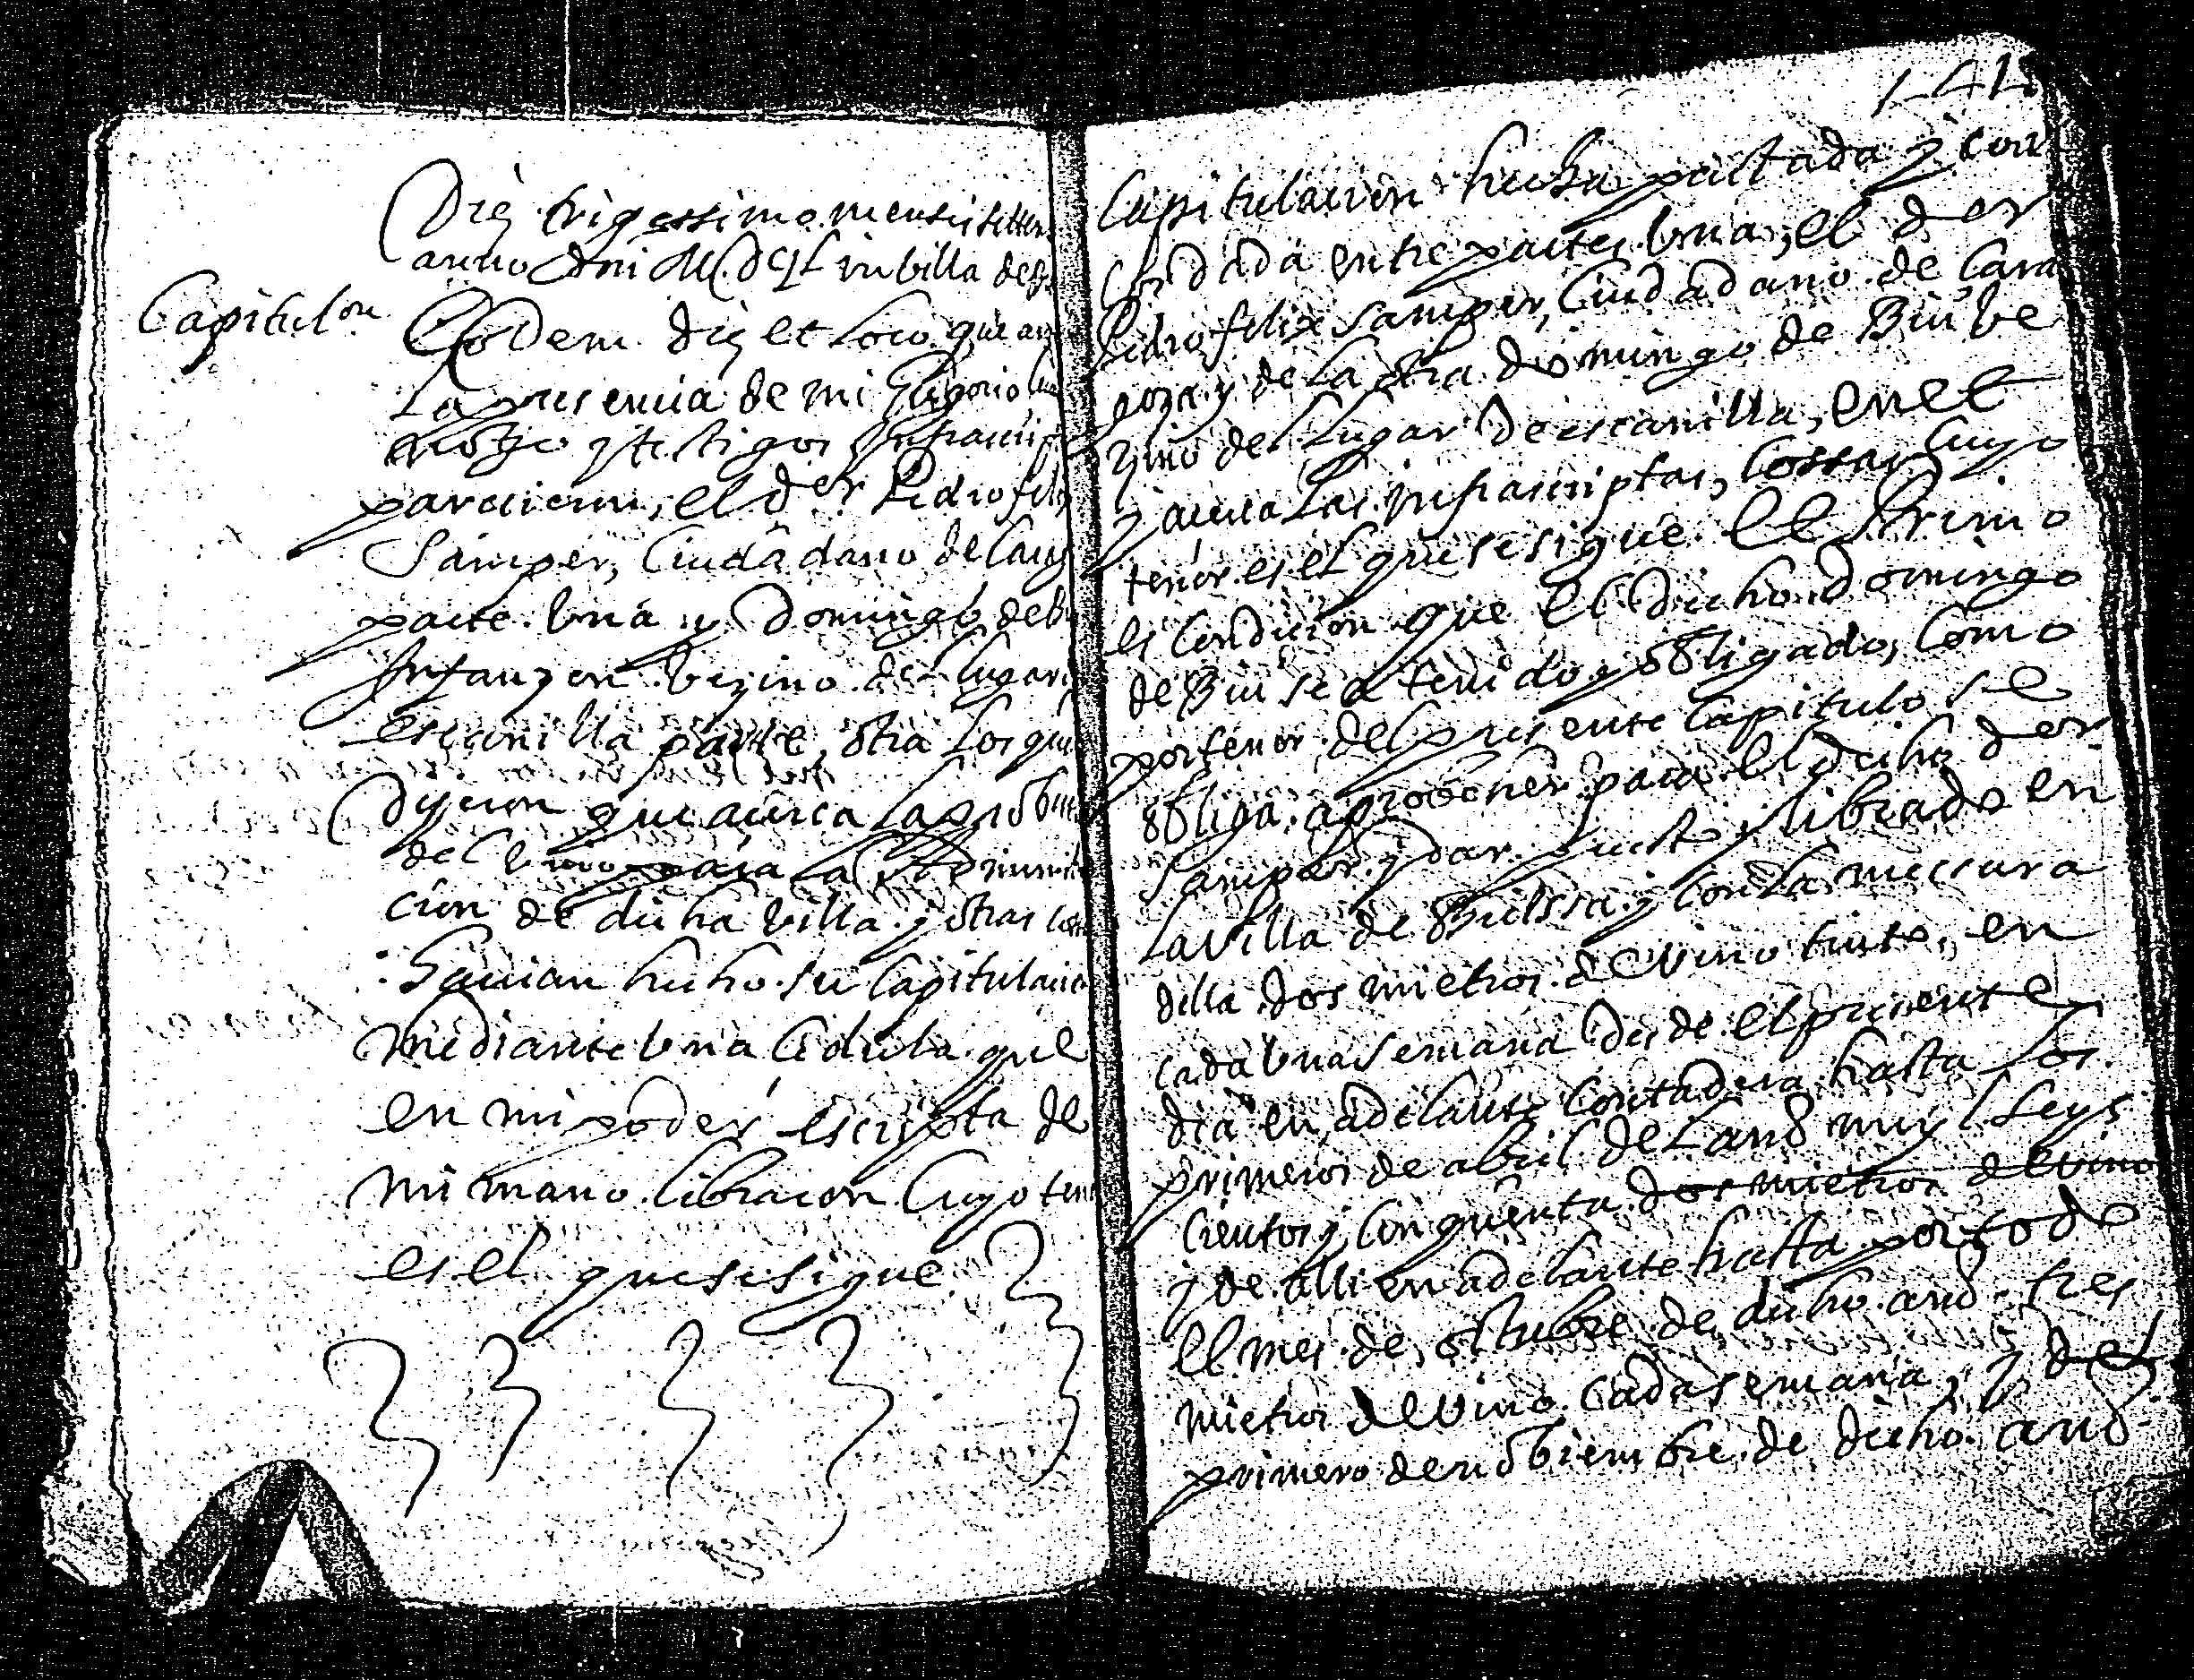 Die trigessimo mensis setten
anno Dni M.DCIL in villa de
Capitulon
Eodem die et loco que an
la presencia de mi Gregorio
notrio y testigos infrascrip
parecieron, el der Pedro feli
Samper, Ciudadano de Carag
parte vna y Domingo de B
Infanzon vezino del lugar
escanilla parte otra los que
Dijeron que acerca la prob
del vino para la
cion de dicha villa y otras cos
hauian hecho su Capitulacio
mediante vna Cedula que
en mi poder escripta de
mi mano libraron Cuyo ten
es el que se sigue
141
Capitulacion hecha pactada y con
Cordada entre partes vna, el der
Pedro felix Samper, Ciudadano de Cara
goza y de la otra Domingo de Biu ve
zino del lugar de escanilla, en et
y acerca las infrascriptas, Cossas Cuyo
tenor es el que se sigue. Et Primo
es Condicion que el dicho Domingo
de Biu sea tenido y obligado, Como
por tenor del presente Capitulo se
obliga, a probeher para el dicho der
Samper y dar puesto y librado en
la villa de y con la messura
della dos mietros de vino tinto, en
cada vna semana desde el presente
dia en adelante Contadera hasta los
primeros de abril del año mil Seys
cientos y Cinquenta dos mietros de vino
y de alli en adelante hasta por todo
el mes de otubre de dicho año tres
mietros de vino cada semana, y del
primero de nobiembre de dicho año